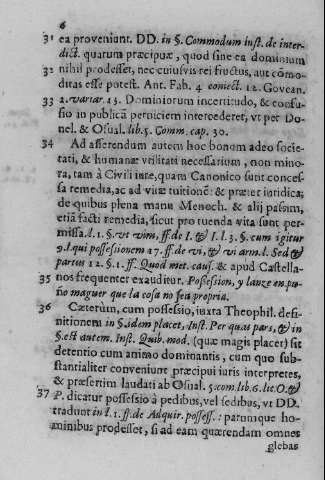 6
31 ea proveniunt. DD. in §. Commodum inst. de inter-
dict. quarum præcipuæ, quod sine ea dominium
32 nihil prodesset, nec cuiusvis rei fructus, aut cõmo-
ditas esse potest. Ant. Fab. 4 coniect. 12. Govean.
33 2. variar. 13. Dominiorum incertitudo, & confu-
sio in publicã perniciem intercederet, vt per Do-
nel. & Osual. lib. 5. Comm. cap. 30.
34 Ad asserendum autem hoc bonum adeo socie-
tati, & humanæ vtilitati necessarium, non mino-
ra, tam à Civili iure, quam Canonico sunt conces-
sa remedia, ac ad vitæ tuitionẽ: & præter iuridica;
de quibus plena manu Menoch. & alij passim,
etiã facti remedia, sicut pro tuenda vita sunt per-
missa. l. 1. §. vt vim, ff. de I. & I. l. 3. §. cum igitur
9. l. qui possessionem 17. ff. de vi, & vi arm. l. Sed &
partus 12. §. 1. ff. Quod met. caus. & apud Castella-
35 nos frequenter exauditur. Possesion, y lanze en pu-
ño maguer que la cosa no sea propria.
36 Cæterùm, cum possessio, iuxta Theophil. defi-
nitionem in §. idem placet, Inst. Per quas pars, & in
§. est autem. Inst. Quib. mod. (quæ magis placet) sit
detentio cum animo dominantis, cum quo sub-
stantialiter conveniunt præcipui iuris interpretes,
& præsertim laudati ab Osual. 5. com. lib. 6. lit. O. &
37 P. dicatur possessio à pedibus, vel sedibus, vt DD.
tradunt in l. 1. ff. de Adquir. possess.: parumque ho-
minibus prodesset, si ad eam quærendam omnes
glebas